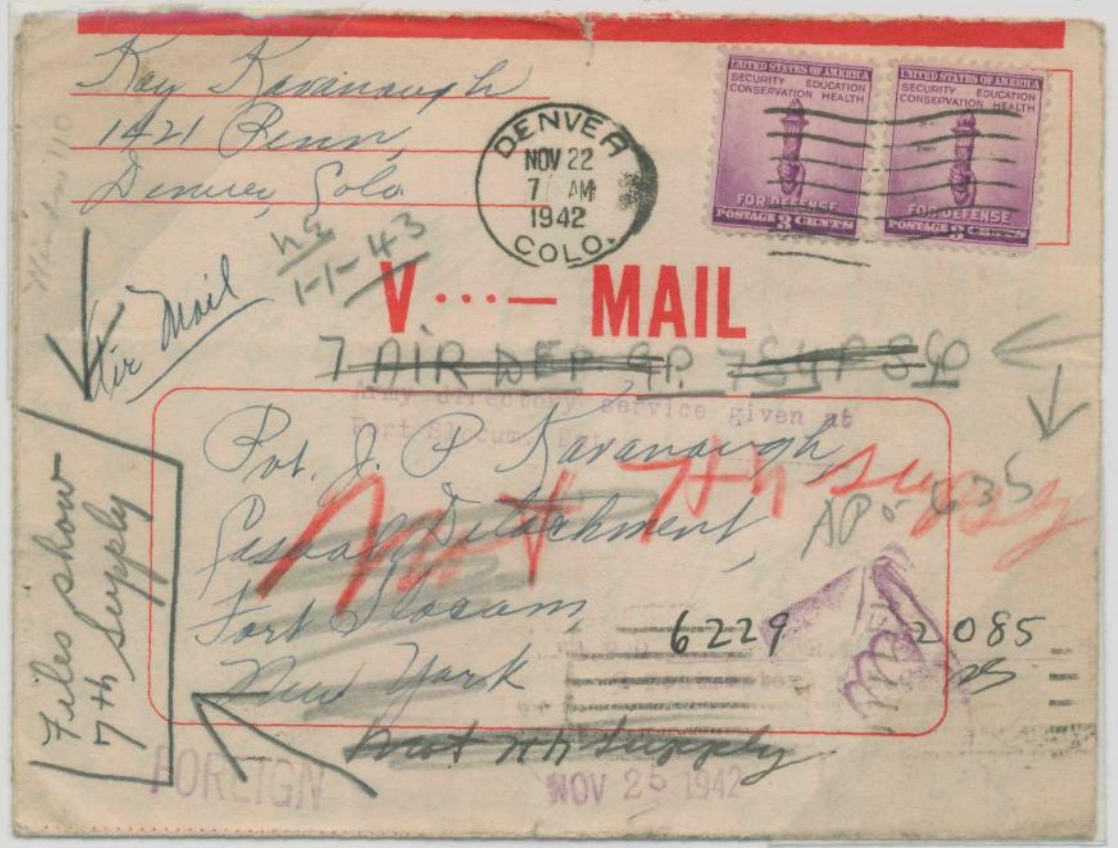 Kay Kavanaugh
1421 Penn,
Denver, Colo
DENVER
NOV 22
7 AM
1942
COLO.
UNITED STATES OF AMERICA
SECURITY EDUCATION
CONSERVATION HEALTH
FOR DEFENSE
POSTAGE 3 CENTS
UNITED STATES OF AMERICA
SECURITY EDUCATION
CONSERVATION HEALTH
FOR DEFENSE
POSTAGE 3 CENTS
1-1-43
Air Mail
V ...— MAIL
7 AIR DEP. GP.
Army directory service given at
Fort Slocum,
Pvt. J. P. Kavanaugh,
Casual Detachment,
Fort Slocum,
New York
Not 7th Supply
APO 635
6229
2085
Files show
7th Supply
not 7th Supply
FOREIGN
NOV 25 1942